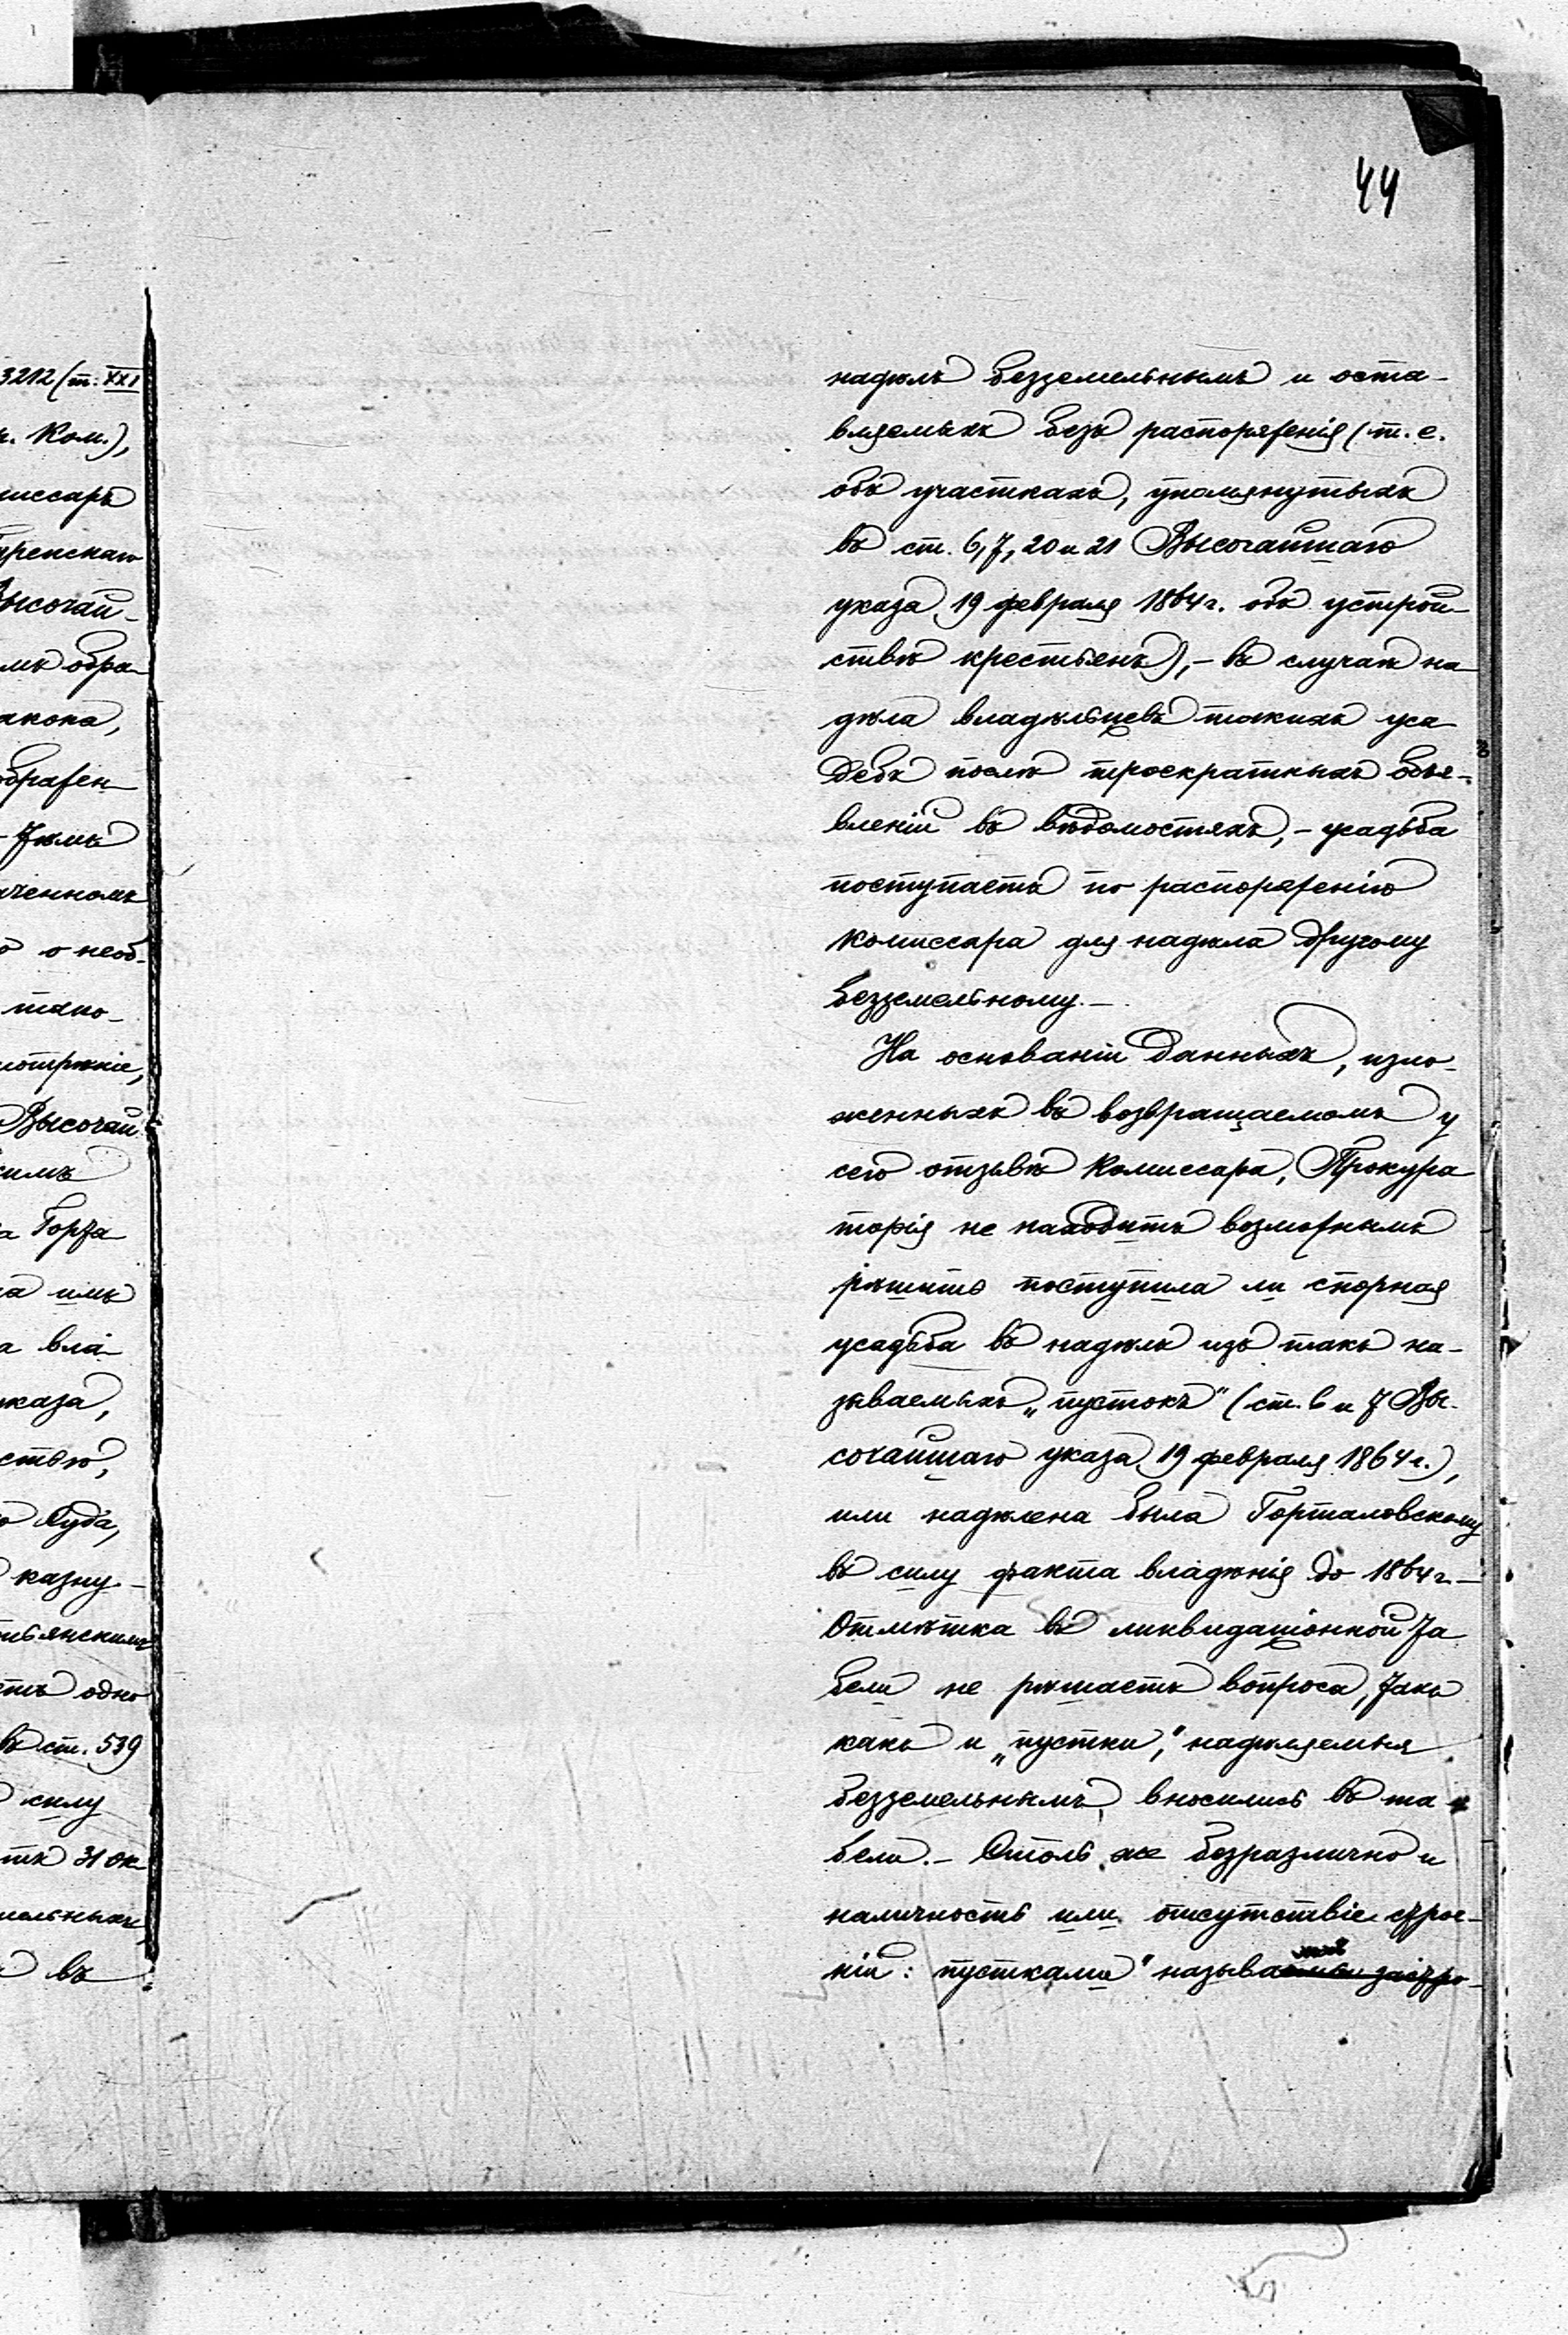 44
3212 (т. XXI
. Ком.),
миссаръ
Высочай-
акона,
ченномъ
о необ-
Высочай-
имъ
а имъ
а вла-
каза,
Суда,
казну.-
одно
въ ст. 539
силу
31 ок-
въ
надѣлъ безземельнымъ и оста-
вляемыхъ безъ распоряженія (т. е.
объ участкахъ, упомянутыхъ
въ ст. 6, 7, 20 и 21 Высочайшаго
указа 19 февраля 1864 г. объ устрой-
ствѣ крестьянъ), - въ случаѣ на-
дѣла владѣльцевъ такихъ уса-
дебъ послѣ троекратныхъ объя-
вленій въ вѣдомостяхъ, - усадьба
поступаетъ по распоряженію
комиссара для надѣла другому
безземельному. -
На основаніи данныхъ, изло-
женныхъ въ возвращаемомъ у
сего отзывѣ Комиссара, Прокура-
торія не находитъ возможнымъ
рѣшить поступила ли спорная
усадьба въ надѣлъ изъ такъ на-
зываемыхъ „пустокъ" (ст. 6 и 7 Вы-
сочайшаго указа 19 февраля 1864 г.),
или надѣлена была Горталовскому
въ силу факта владѣнія до 1864 г. -
Отмѣтка въ ликвидаціонной та
бели не рѣшаетъ вопроса, такъ
какъ и „пустки," надѣляемыя
безземельнымъ, вносились въ та
бели. - Столь же безразлично и
наличность или отсутствіе строе-
ній: пустками" называ